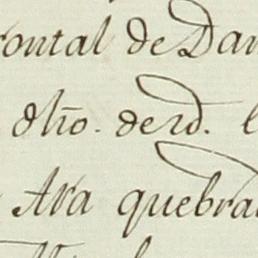 rontal de Dam
dho. de rd. l
Ara quebra